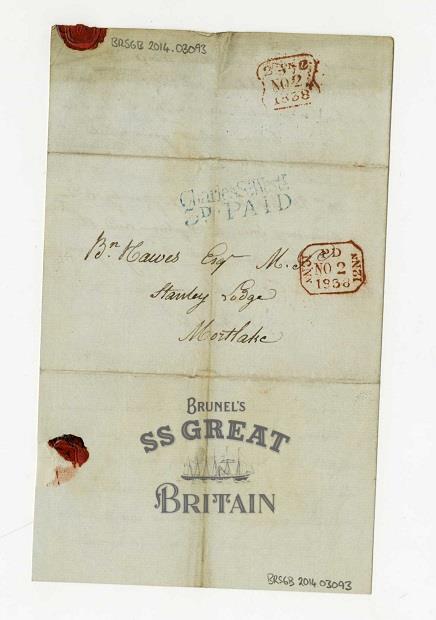 BRSGB 2014.03093
NO 2
1838
Charles Street
3D PAID
Bn Hawes Esqr M.P.
Stanley Lodge
Mortlake
PD
NO 2
1838
BRUNEL'S
SS GREAT
BRITAIN
BRSGB 2014 03093